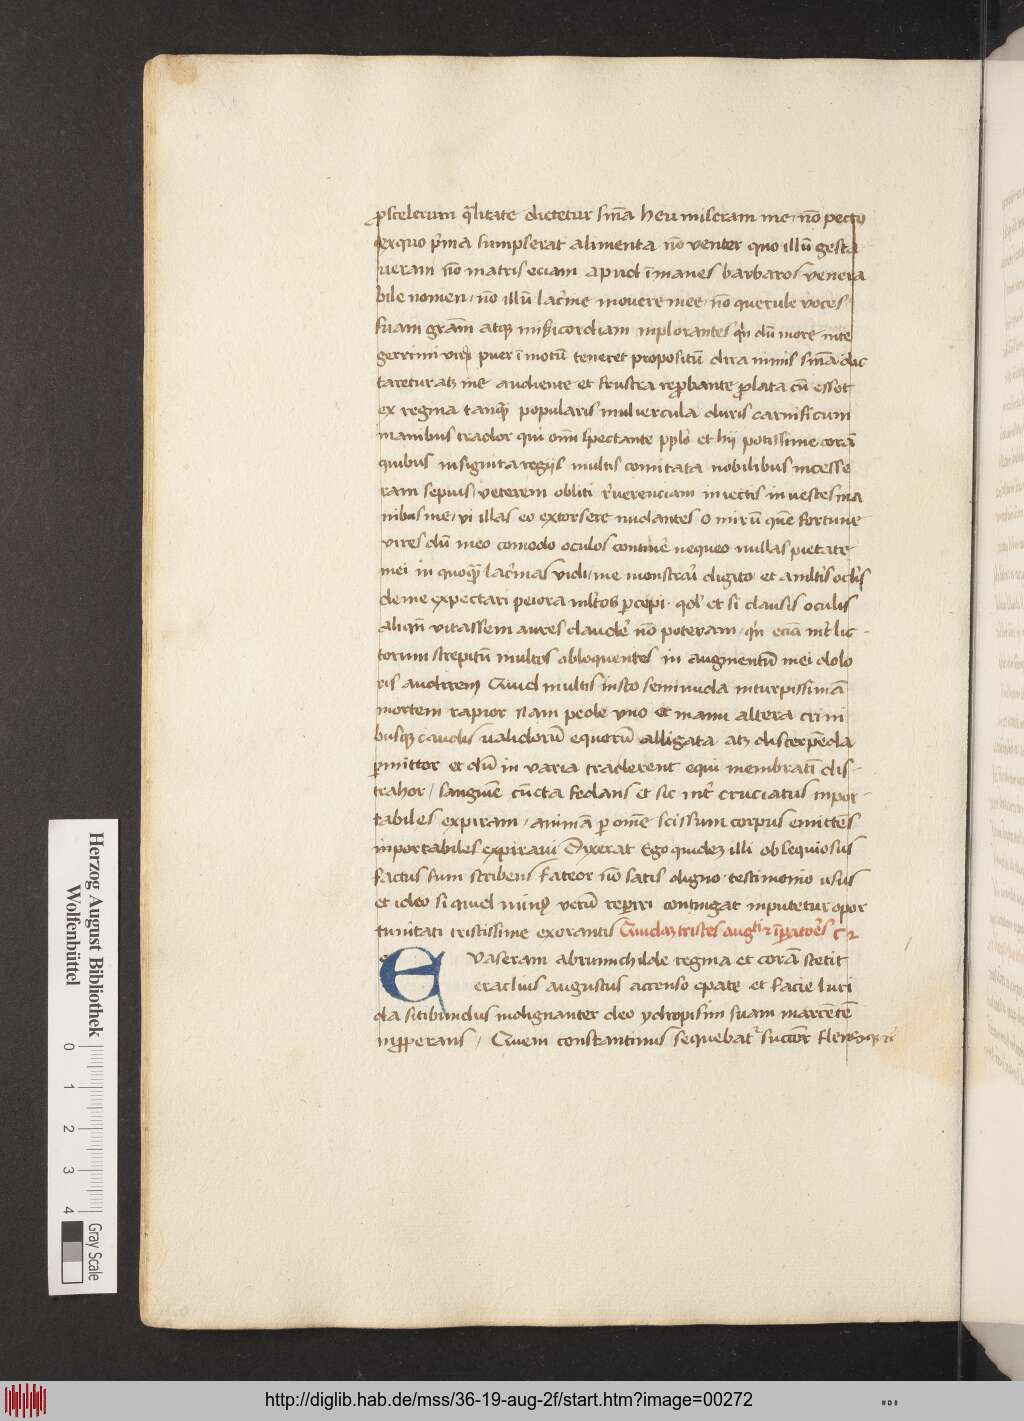 p̱scelerum q̄litate dictetur sm̄a heu miseram me / nō pecto
exquo p̄ma sumpserat alimenta nō venter quo illū gesta
ueram nō matris eciam apud īmanes barbaros venera
bile nomen / nō illū lac̄me mouere mee / nō querule voces
suam grām atq̨ misericordiam inplorantes q̄n dū more inte
gerrimi viri puer īmotū teneret propositū dira nimis sm̄a dic
taretur atq̨ me audiente et frustra rep̱bante p̱lata cū essēt
ex regina tanq̄ popularis muliercula duris carnificum
manibus trador qui om̄i spectante pplō et hij potissime corā
quibus insignita regijs multis comitata nobilibus incesse
ram sepius / veterem obliti r̄uerenciam iniectis in vestes ma
nibus me / vi illas eo extorsere nudantes O mirū que fortune
vires dū meo comodo oculos continē nequeo nullas pietate
mei in quoq̄ lac̄mas vidi / me monstrari digito et a mltīs oclīs
de me expectari peiora mltōs p̱cepi · qd' et si clausis oculis
aliqn̄ vitassem aures claudē nō poteram / q̄n eciā int' lic
torum strepitū multos obloquentes in augmentū mei dolo
ris audirem Quid multis insto seminuda in turpissimā
mortem rapior Nam pede vno et manu altera crini
busq̨ caudis validorū equorū alligata atq̨ discerpēda
p̱mittor et dū in varia traderent equi membrati dis
trahor / sanguīe cūcta fedans et sic int' cruciatus inpor
tabiles expiram / animā p̱ om̄e scissum corpus emittēs
inportabiles expiraui Dixerat Ego quidem illi obsequiosus
factus sum scribens fateor nō satis digno testimonio usus
et ideo si quid min9 verū rep̱iri contingat inputetur opor
tunitati tristissime exorantis Quidam tristes augti z īp̱atorēs c 2
Euaseram a brunnichilde regina et corā stetit
eraclius augustus accenso epate et facie luri
da sitibundus indignanter deo ydropisim suam marcētē
inp̱perans / Quem constantinus sequebat' succor flensq̨ z
Herzog August Bibliothek
Wolfenbüttel
0 1 2 3 4
Gray Scale
http://diglib.hab.de/mss/36-19-aug-2f/start.htm?image=00272